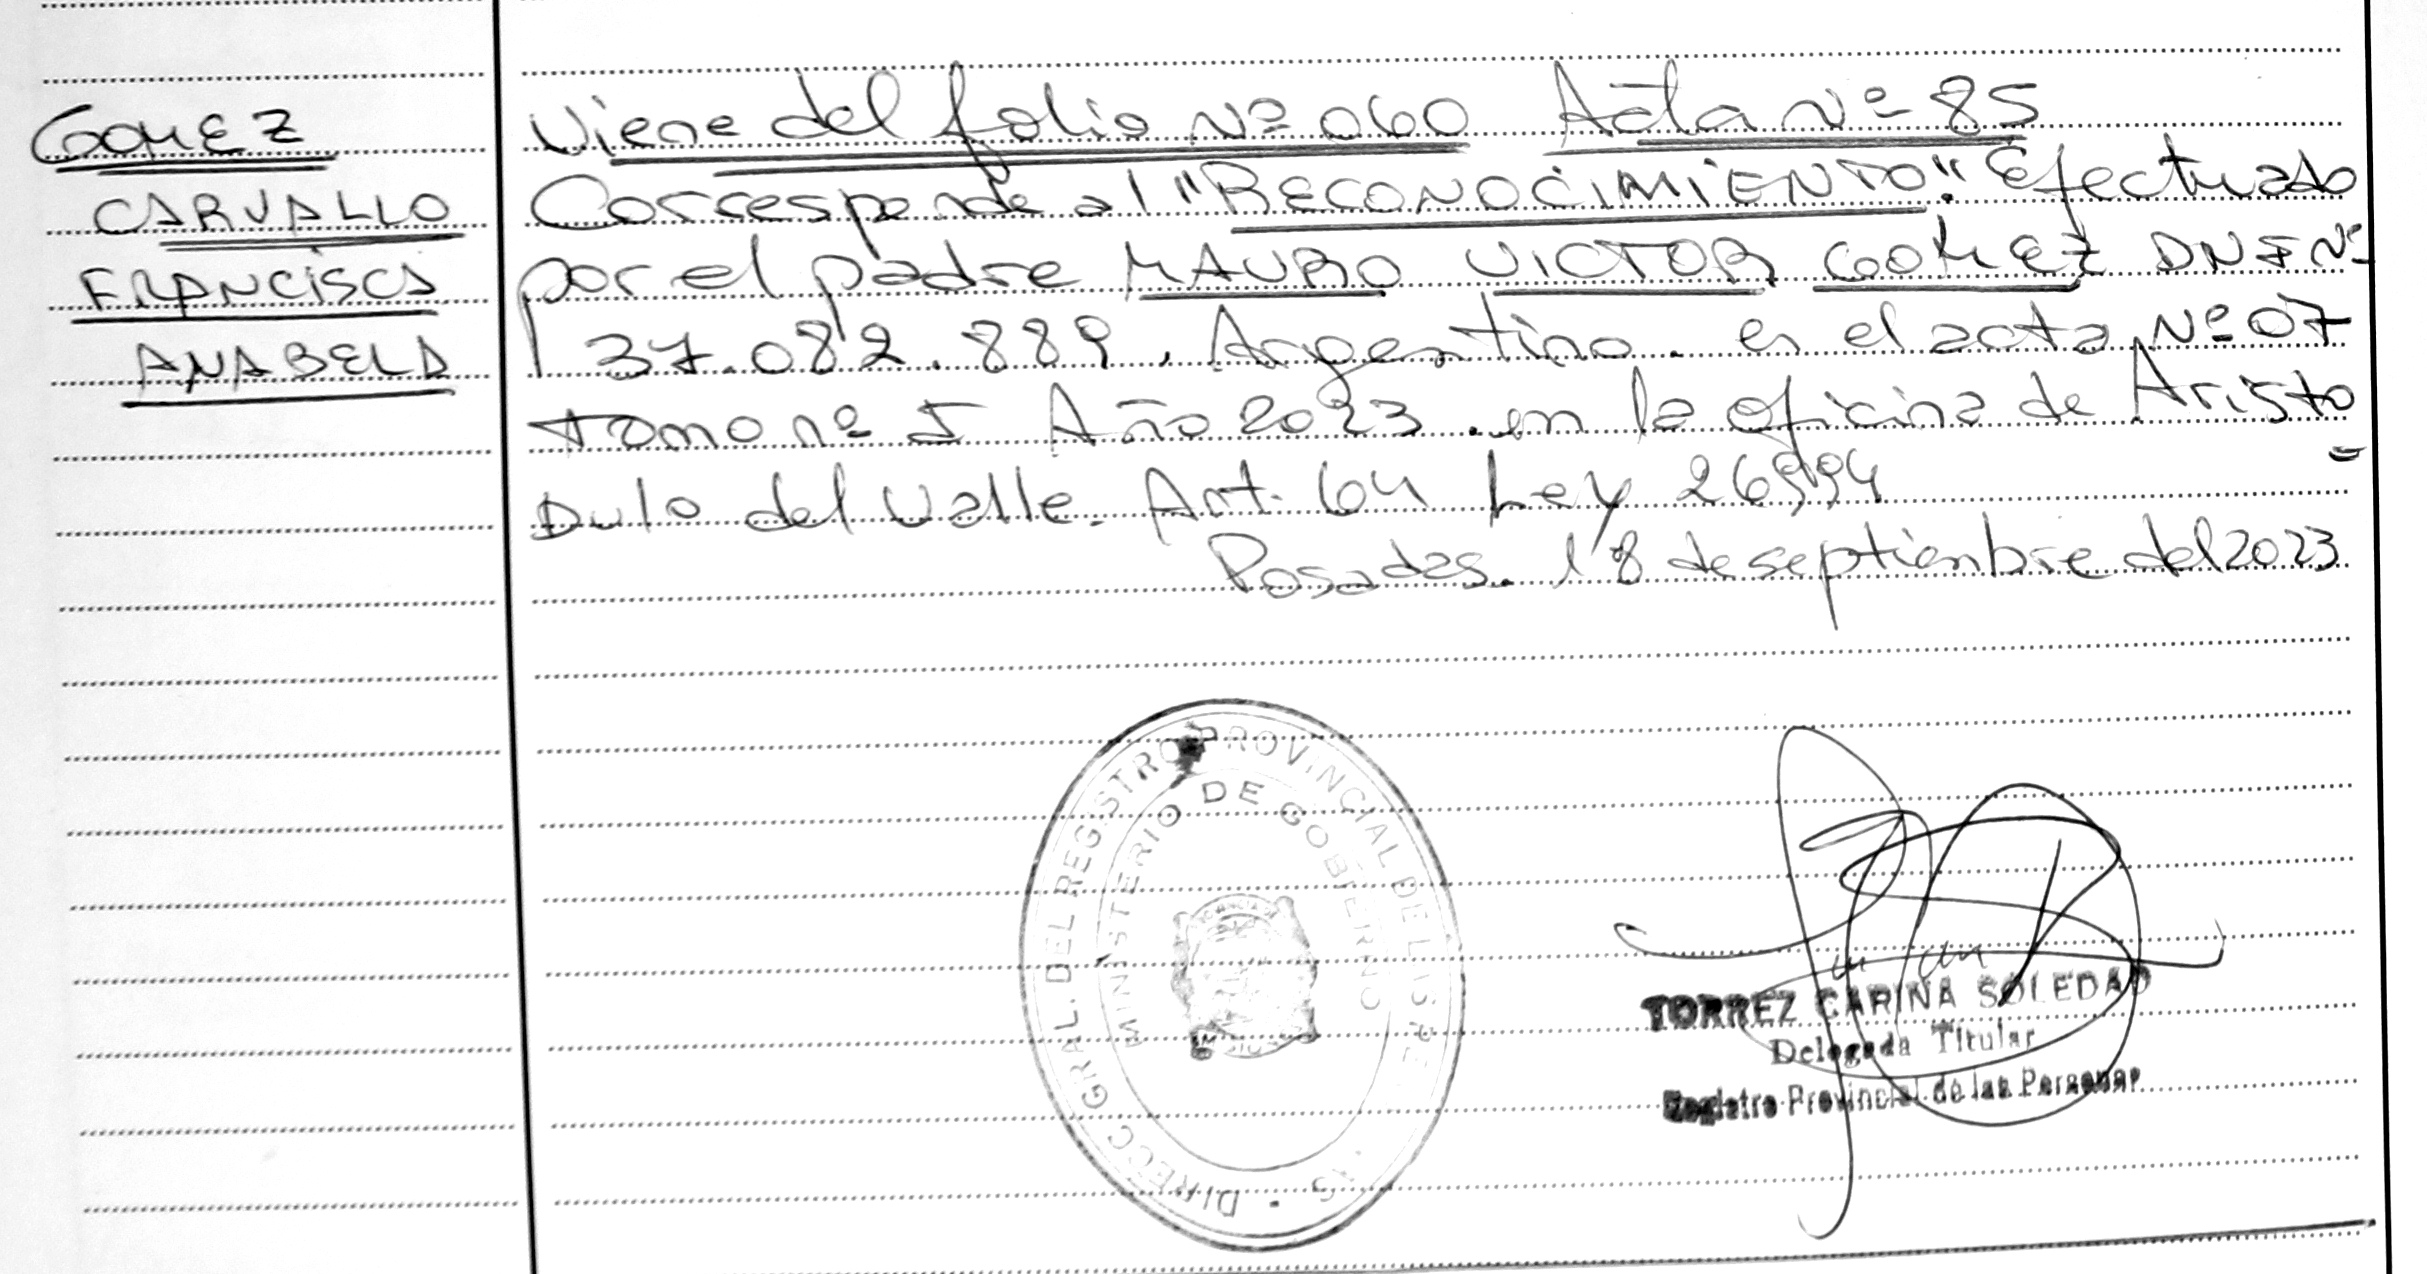 GOMEZ
CARVALLO
FRANCISCA
ANABELA
Viene del folio Nº 060 Acta Nº 85
Corresponde al "RECONOCIMIENTO". Efectuado
por el padre MAURO VICTOR GOMEZ DNI Nº
37.082.889. Argentino. en el acta Nº 07
Tomo nº I Año 2023. en la oficina de Aristo
Dulo del Valle. Art. 64 Ley 26994
Posadas. 18 de septienbre del 2023.
DIRECC. GRAL. DEL REGISTRO PROVINCIAL DE LAS PERSONAS
MINISTERIO DE GOBIERNO
TORREZ CARINA SOLEDAD
Delegada Titular
Registro Provincial de las Personas